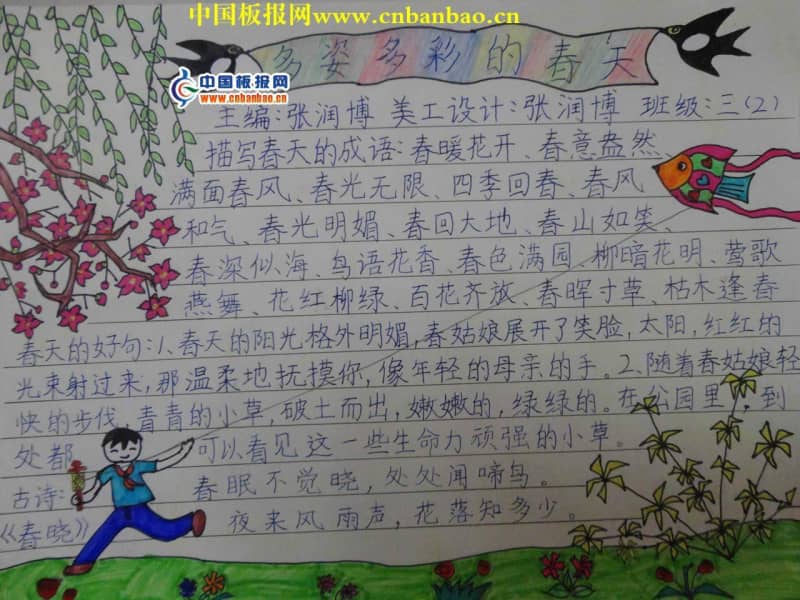 中国板报网www.cnbanbao.cn
多姿多彩的春天
中国板报网
www.cnbanbao.cn
主编:张润博 美工设计:张润博 班级:三(2)
描写春天的成语:春暖花开、春意盎然、
满面春风、春光无限、四季回春、春风
和气、春光明媚、春回大地、春山如笑、
春深似海、鸟语花香、春色满园、柳暗花明、莺歌
燕舞、花红柳绿、百花齐放、春晖寸草、枯木逢春
春天的好句:1、春天的阳光格外明媚,春姑娘展开了笑脸,太阳,红红的
光束射过来,那温柔地抚摸你,像年轻的母亲的手。2、随着春姑娘轻
快的步伐,青青的小草,破土而出,嫩嫩的,绿绿的。在公园里,到
处都可以看见这一些生命力顽强的小草。
古诗: 春眠不觉晓,处处闻啼鸟。
《春晓》 夜来风雨声,花落知多少。